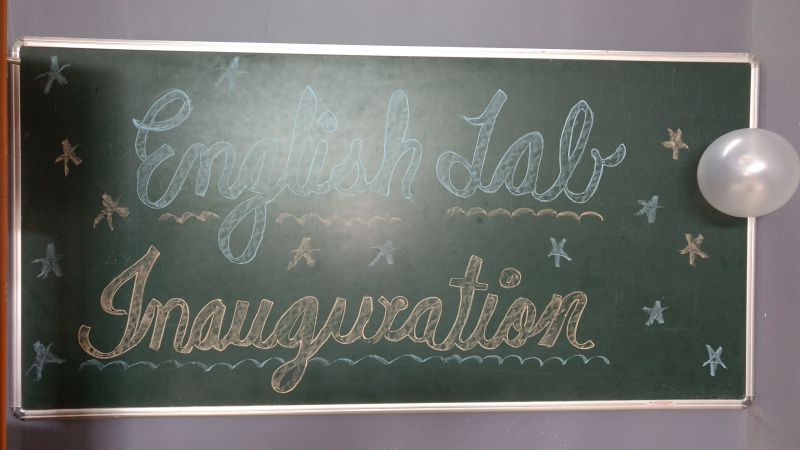 English Lab
Inauguration